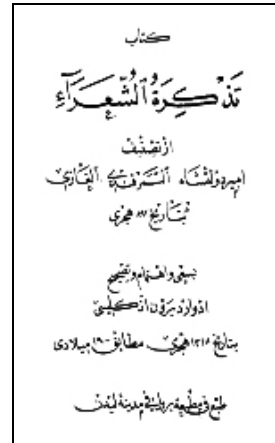 كتاب
تَذْكِرَةُ ٱلشُّعَرَآءِ
از تصنيف
امير دولتشاه السمرقندى الغازى
بتاريخ هجرى
بسعى و اهتمام و تصحيح
ادوارد برون انگليسى
بتاريخ ١٣١٨ هجرى مطابق ١٩٠٠ ميلادى
طبع فى مطبعة بريل فى مدينة ليدن